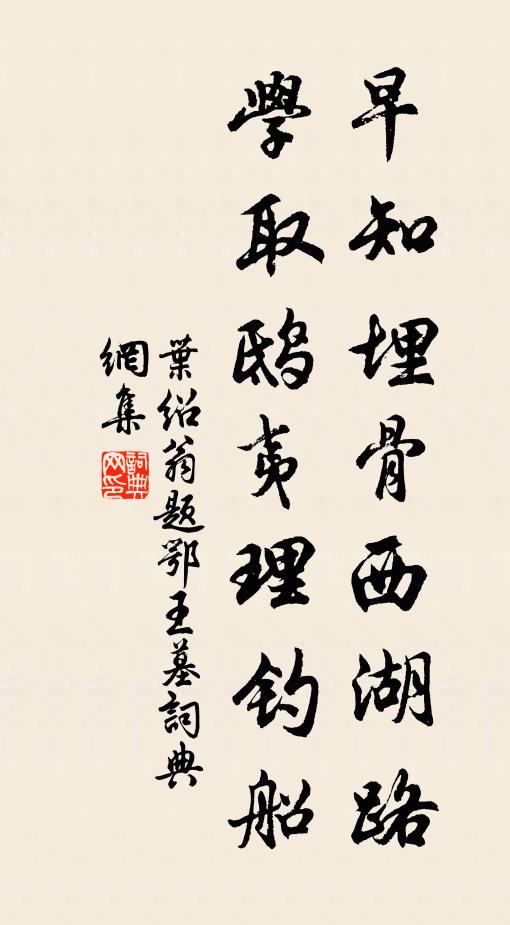 早知埋骨西湖路
學取鴟夷理钓船
葉紹翁題鄂王墓詞典
網集
詞典
网印